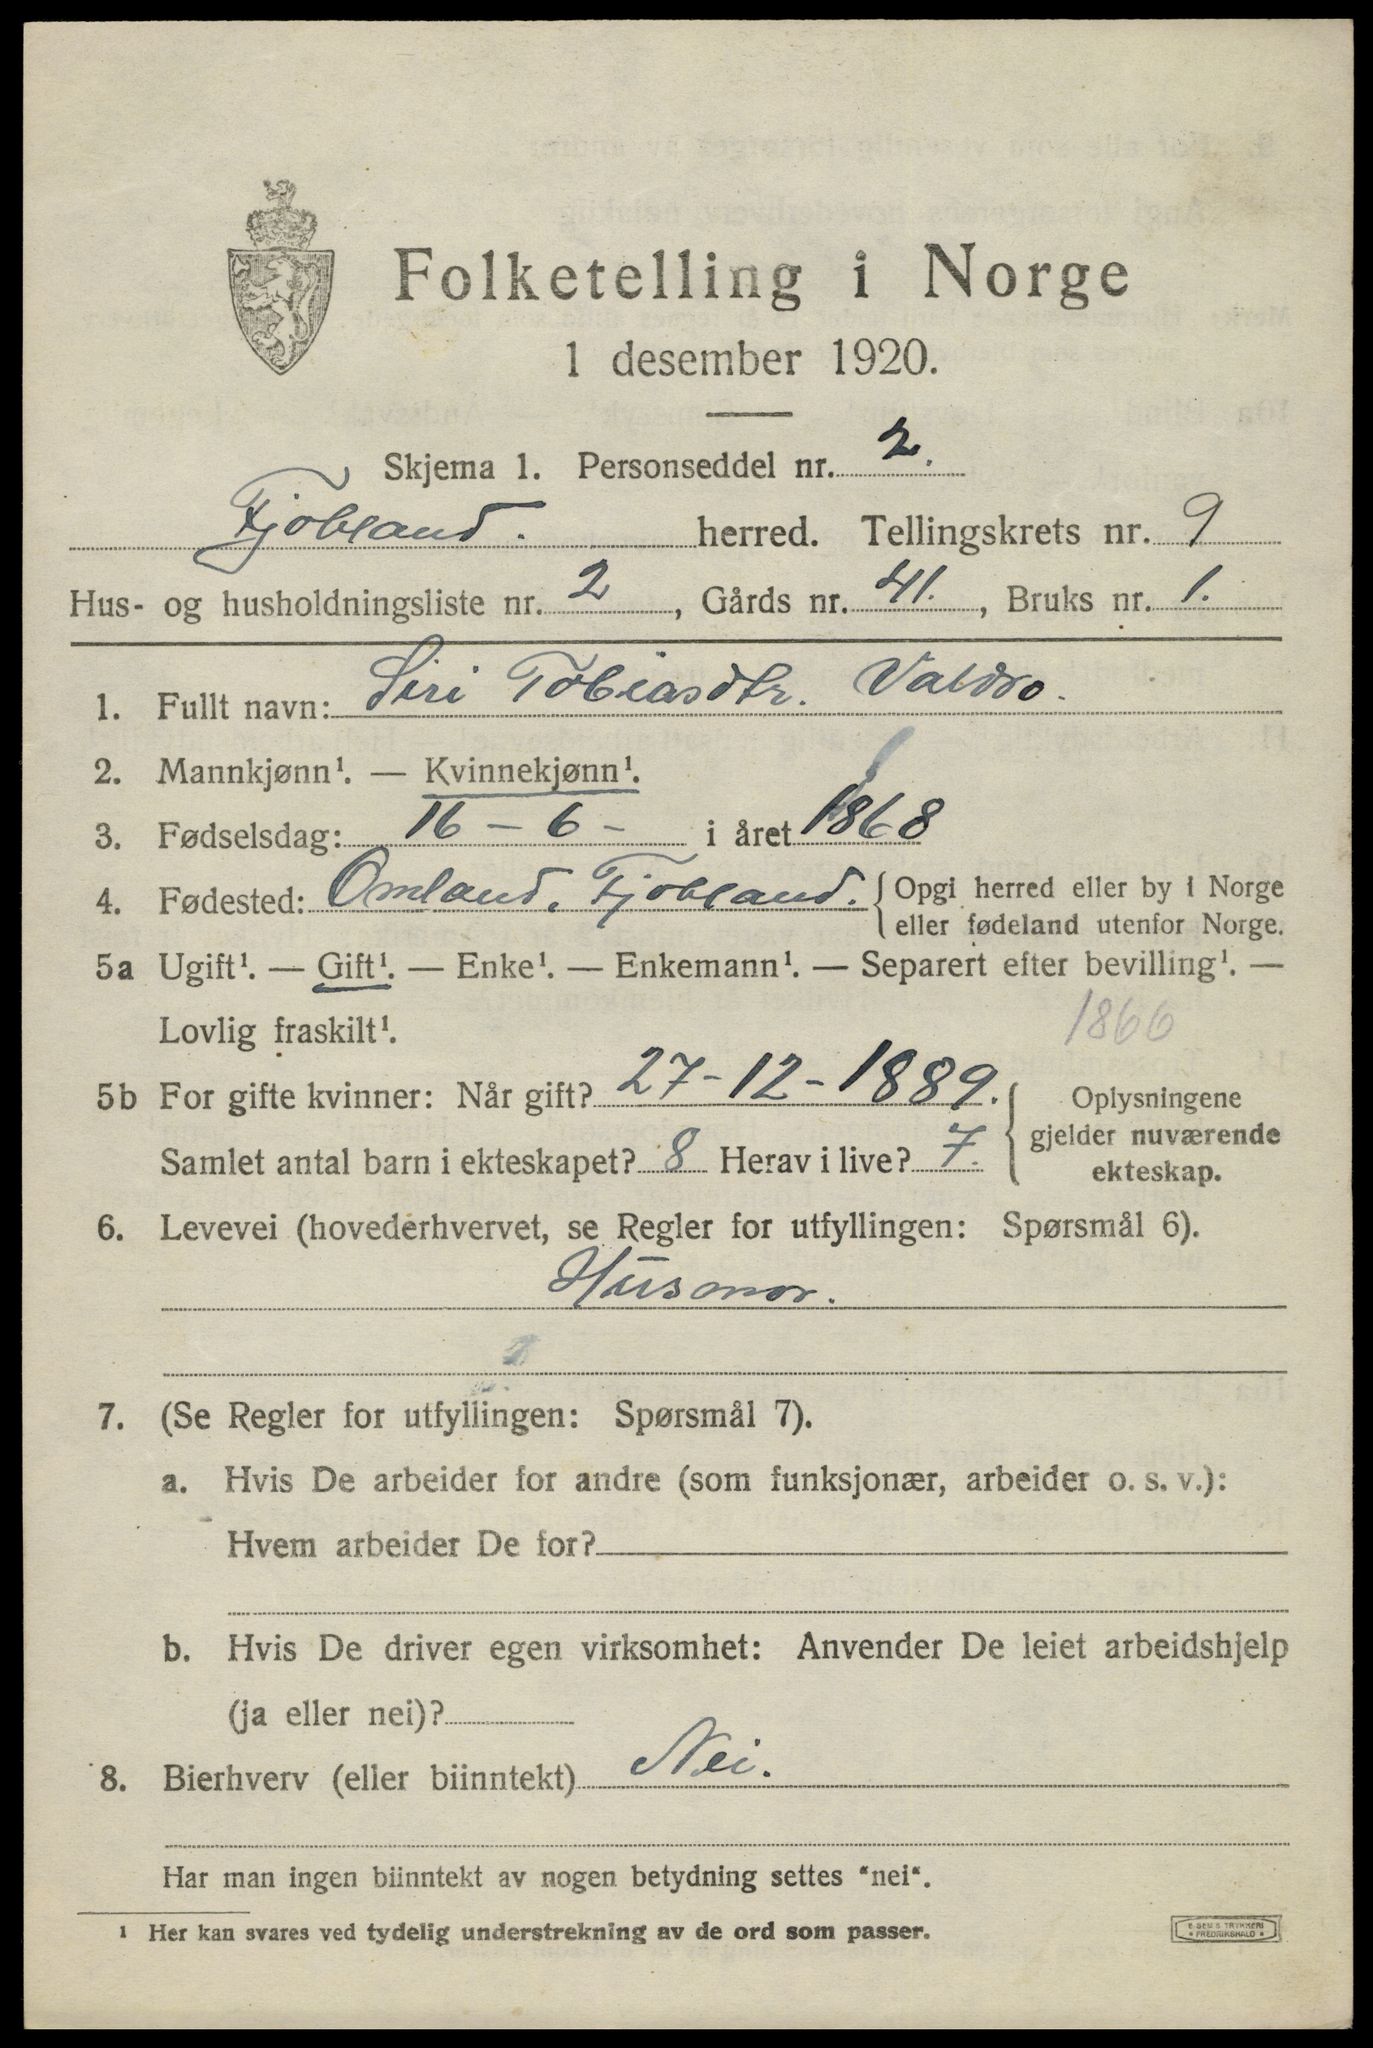 Folketelling i Norge
1 desember 1920.
Skjema 1. Personseddel nr. 2.
Fjotland. herred. Tellingskrets nr. 9
Hus- og husholdningsliste nr. 2, Gårds nr. 41., Bruks nr. 1.
1. Fullt navn: Siri Tobiasdtr. Valdro.
2. Mannkjønn¹. — Kvinnekjønn¹.
3. Fødselsdag: 16 - 6 - i året 1868
4. Fødested: Omland, Fjotland. {Opgi herred eller by i Norge
eller fødeland utenfor Norge.
5a Ugift¹. — Gift¹. — Enke¹. — Enkemann¹. — Separert efter bevilling¹. —
Lovlig fraskilt¹.
1866
5b For gifte kvinner: Når gift? 27-12-1889. { Oplysningene
gjelder nuværende
Samlet antal barn i ekteskapet? 8 Herav i live? 7.
ekteskap.
6. Levevei (hovederhvervet, se Regler for utfyllingen: Spørsmål 6).
Husmor.
7. (Se Regler for utfyllingen: Spørsmål 7).
a. Hvis De arbeider for andre (som funksjonær, arbeider o. s. v.):
Hvem arbeider De for?
b. Hvis De driver egen virksomhet: Anvender De leiet arbeidshjelp
(ja eller nei)?
8. Bierhverv (eller biinntekt) Nei.
Har man ingen biinntekt av nogen betydning settes "nei".
1 Her kan svares ved tydelig understrekning av de ord som passer.
E SEM'S TRYKKERI
FREDRIKSHALD